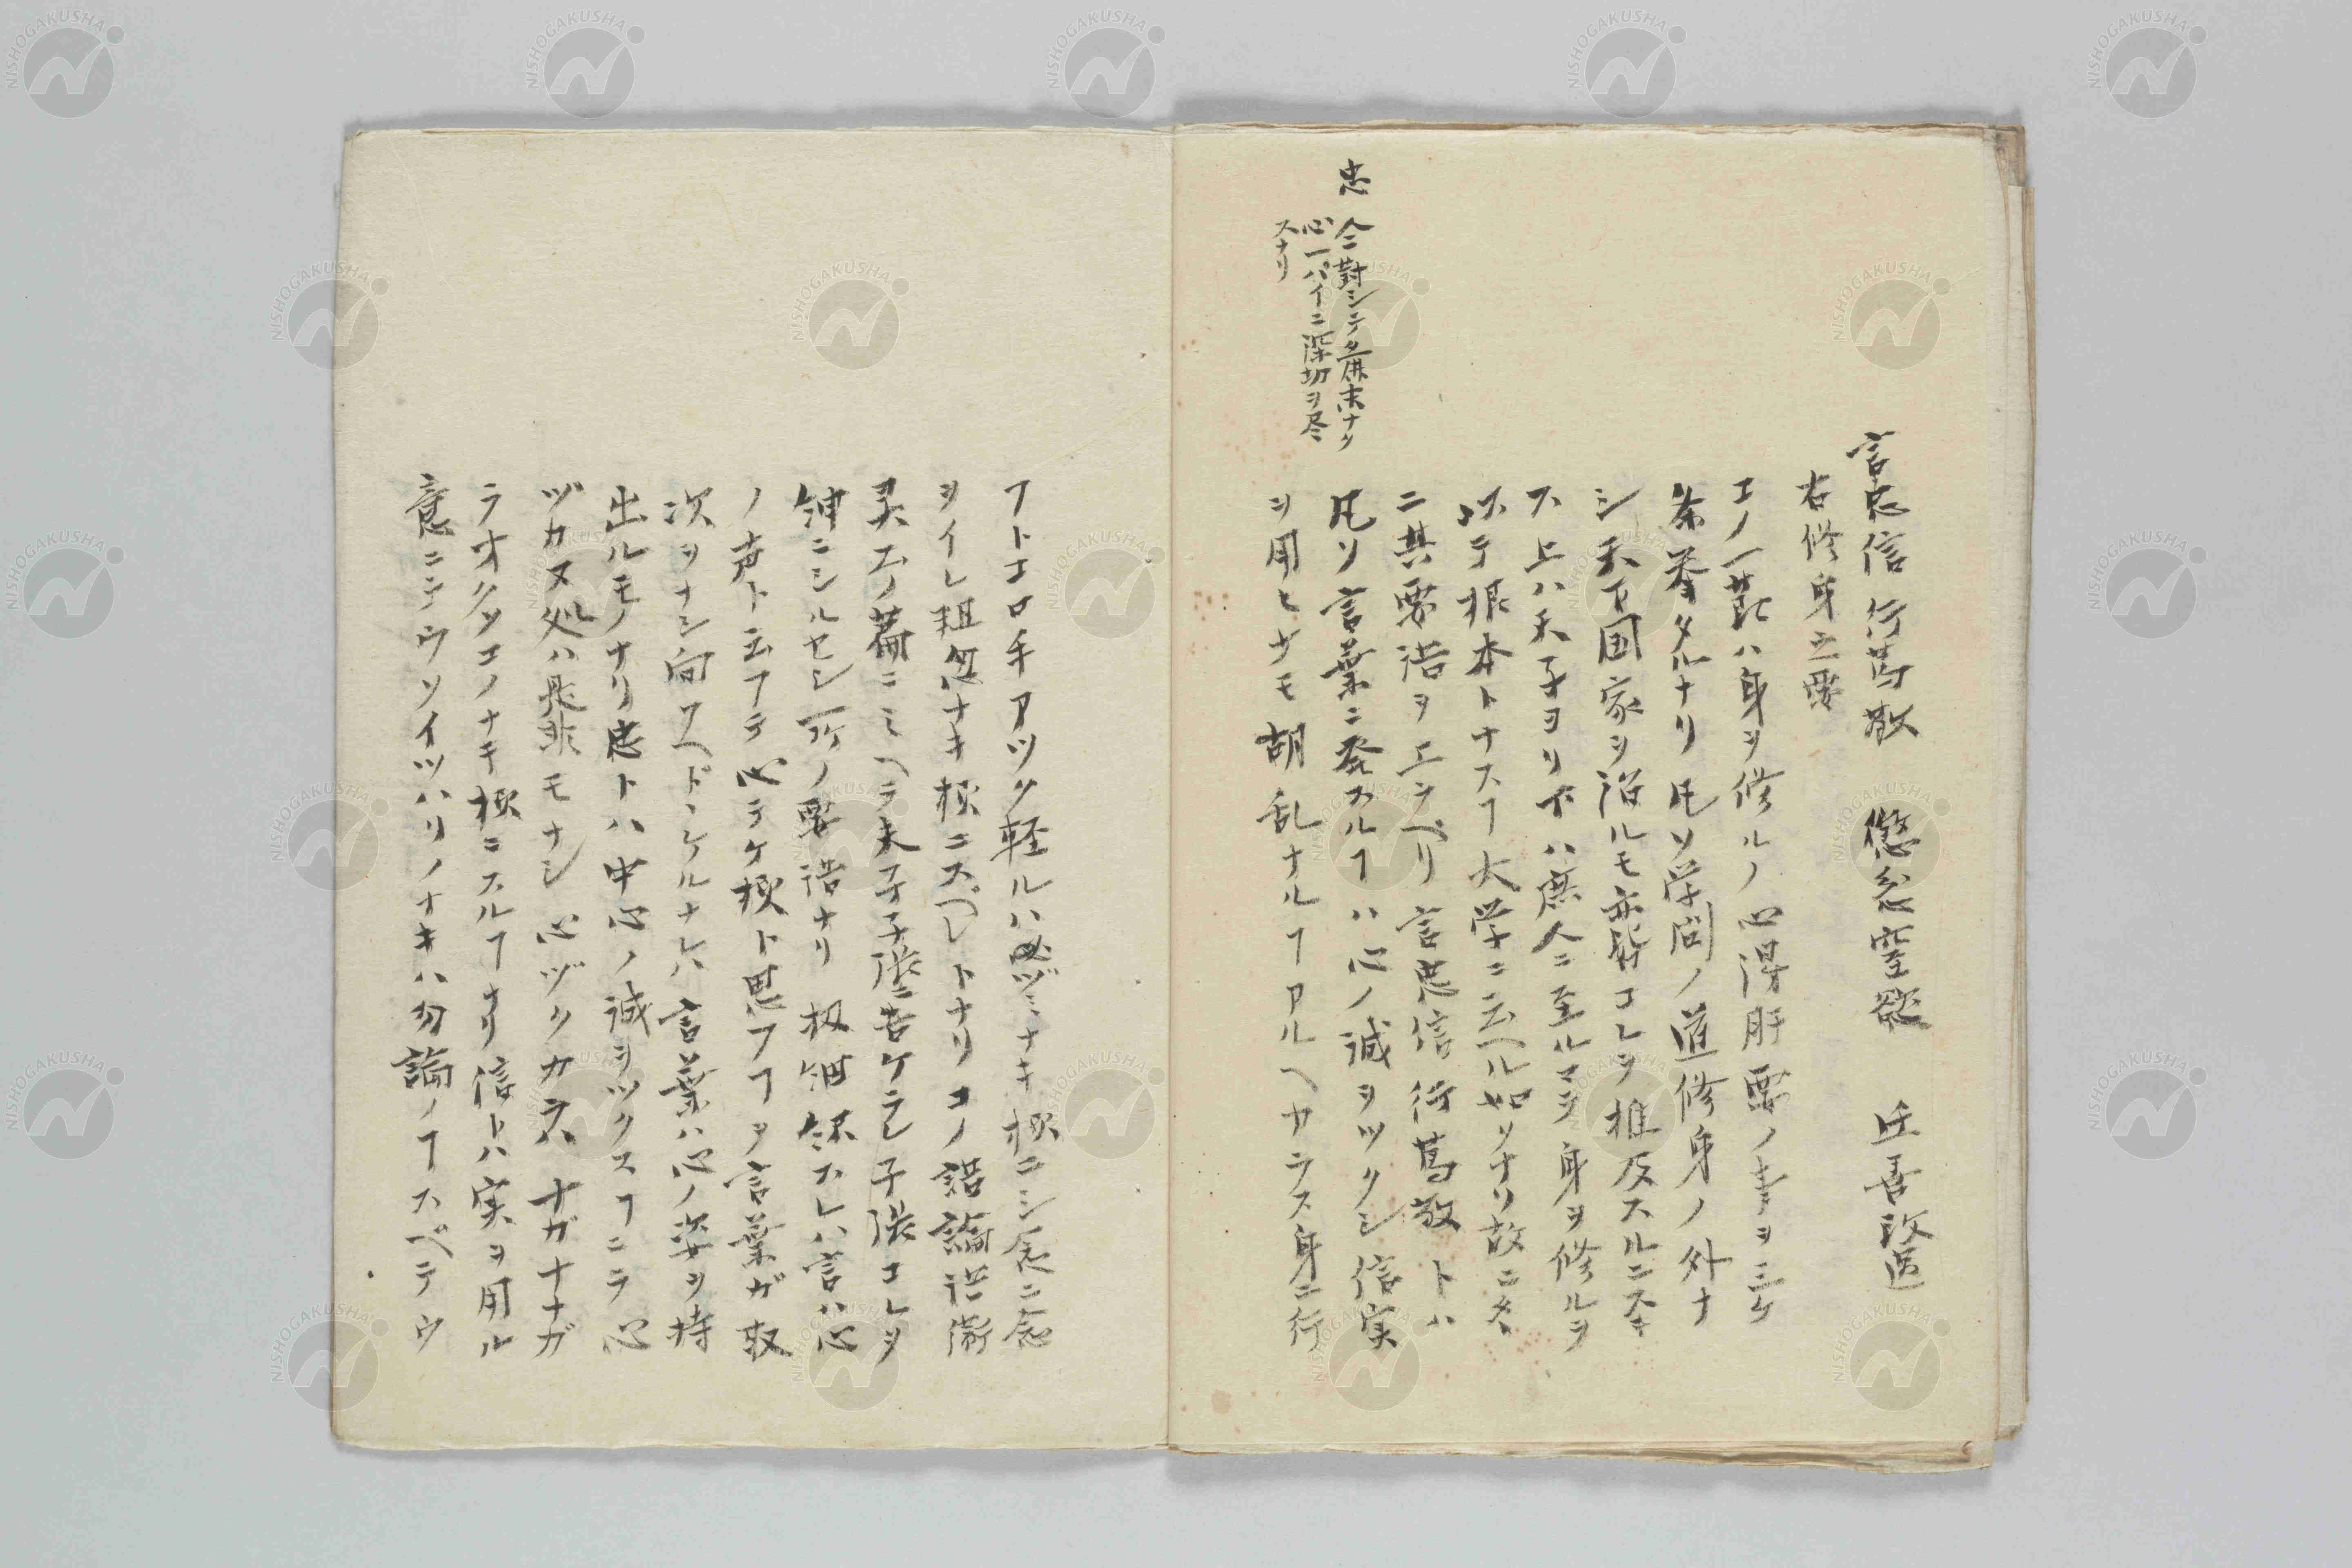 言忠信行篤敬 懲忿窒慾 迁善改過
右修身之要
コノ一節ハ身ヲ修ルノ心得肝要ノヿヲ三ケ
条挙タルナリ凡ソ学問ノ道修身ノ外ナ
シ天下国家ヲ治ルモ亦皆コレヲ推及スルニ不
ス上ハ天子ヨリ下ハ庶人ニ至ルマテ身ヲ修ルヲ
以テ根本トナスヿ大学ニ云ヘル如クナリ故ニ
ニ其要語ヲエラベリ言忠信行篤敬トハ
凡ソ言葉ニ発スルヿハ心ノ誠ヲツクシ信実
ヲ用ヒ少モ胡乱ナルヿアルヘカラス身ニ行
忠 人ニ對シテ麁末ナク
心一パイニ深切ヲ尽
スナリ
フトコロ手アツク軽ルハヅミナキ様ニシ念ニ念
ヲイレ粗忽ナキ様ニスベシトナリコノ語論語衛
灵公ノ篇ニミヘテ夫子子張ニ告ケラレ子張コレヲ
紳ニシルセシ所ノ要語ナリ扨細釈スレハ言ハ心
ノ声ト云フテ心テケ様ト思フヿヲ言葉ガ取
次ヲナシ向フヘトヾケルナレハ言葉ハ心ノ姿ヲ持
出ルモノナリ忠トハ中心ノ誠ヲツクスヿニテ心
ヅカヌ処ハ是非モナシ心ヅクカラハナガナガ
ラオクソコノナキ様ニスルヿナリ信トハ実ヲ用ル
意ニテウソイツハリノナキハ勿論ノヿスベテウ